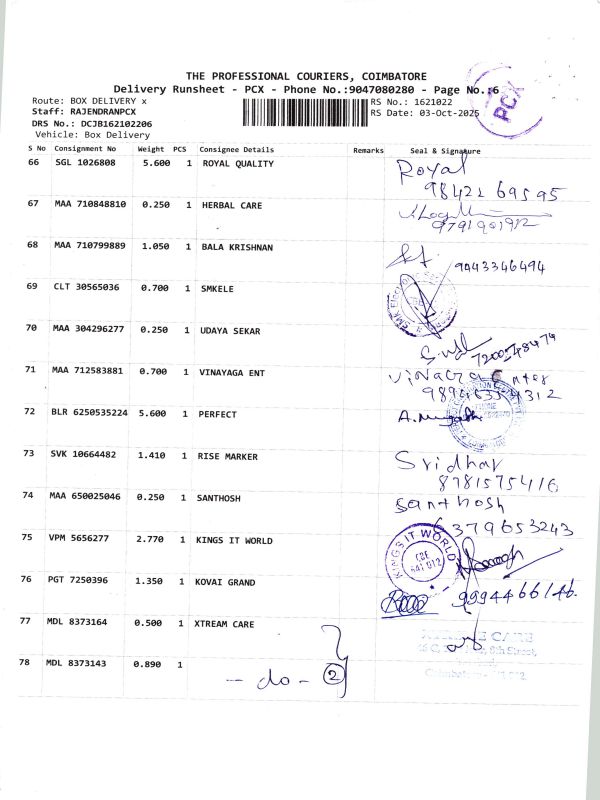 THE PROFESSIONAL COURIERS, COIMBATORE
Delivery Runsheet - PCX - Phone No.:9047080280 - Page No.:6
PCX
Route: BOX DELIVERY x
Staff: RAJENDRANPCX
DRS No.: DCJB162102206
Vehicle: Box Delivery
RS No.: 1621022
RS Date: 03-Oct-2025
S No Consignment No Weight PCS Consignee Details Remarks Seal & Signature
66 SGL 1026808 5.600 1 ROYAL QUALITY Royal
98422 69595
67 MAA 710848810 0.250 1 HERBAL CARE
9791901912
68 MAA 710799889 1.050 1 BALA KRISHNAN
9443346494
69 CLT 30565036 0.700 1 SMKELE
70 MAA 304296277 0.250 1 UDAYA SEKAR
71 MAA 712583881 0.700 1 VINAYAGA ENT
72 BLR 6250535224 5.600 1 PERFECT
73 SVK 10664482 1.410 1 RISE MARKER Sridhar
8781575416
74 MAA 650025046 0.250 1 SANTHOSH Santhosh
6379653243
75 VPM 5656277 2.770 1 KINGS IT WORLD KINGS IT WORLD
CBE
641 012
76 PGT 7250396 1.350 1 KOVAI GRAND
9994466146
77 MDL 8373164 0.500 1 XTREAM CARE
78 MDL 8373143 0.890 1 - do - 2